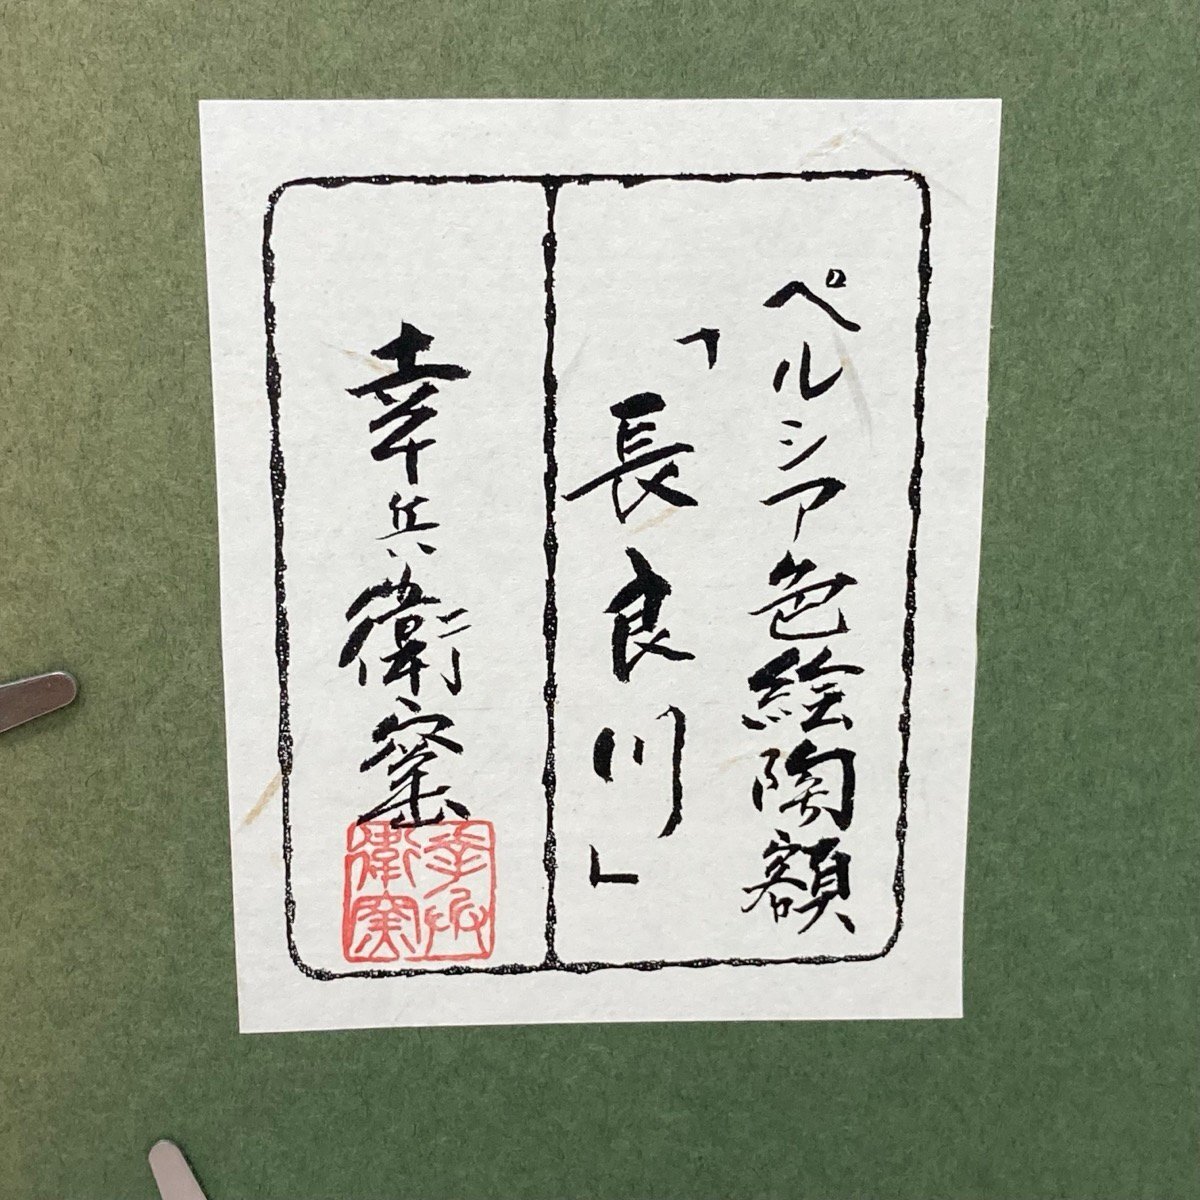 ペルシア色絵陶額
「長良川」
幸兵衛窯
幸兵衛窯